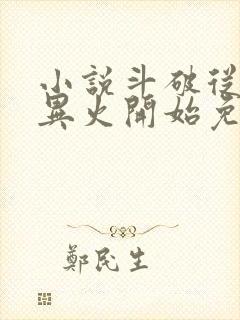 小說斗破從
異火開始免
鄭民生